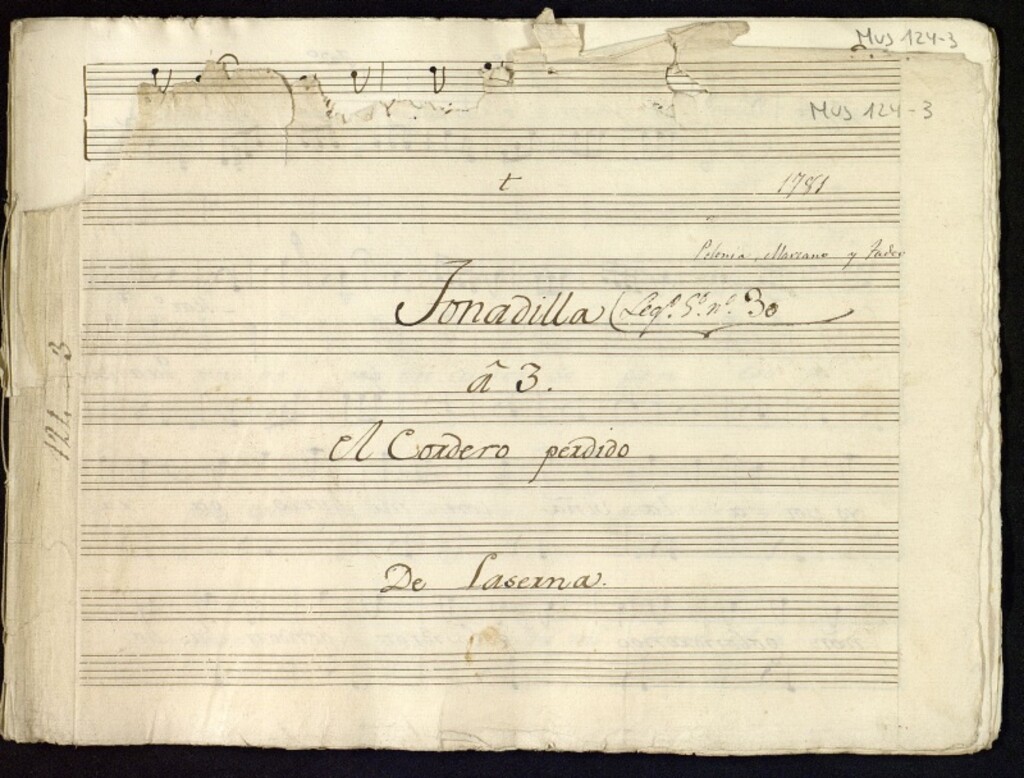 Mus 124-3
Mus 124-3
t 1781
Polonia, Mariano y Tadeo
Tonadilla (Legº. 5º. nº. 30
â 3.
El Cordero perdido
De Laserna.
124-3